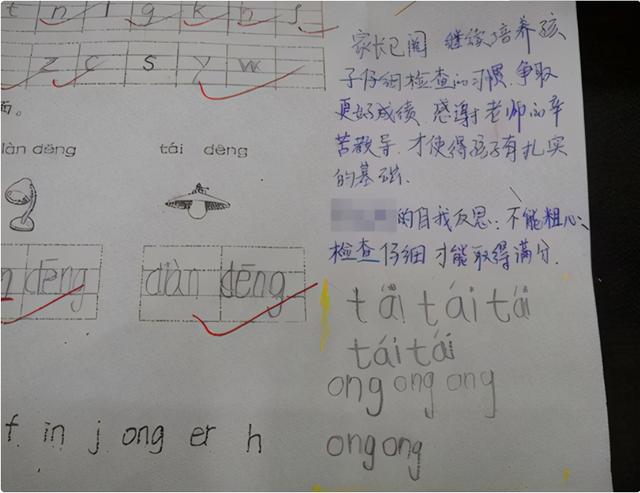 t n l g k h f
z c s y w
面。
làn dēng
tái dēng
dēng
diàn dēng
f in j ong er h
家长已阅 继续培养孩
子仔细检查的习惯,争取
更好成绩,感谢老师的辛
苦教导,才使得孩子有扎实
的基础.
的自我反思:不能粗心、
检查仔细才能取得满分.
tái tái tái
tái tái
ong ong ong
ong ong